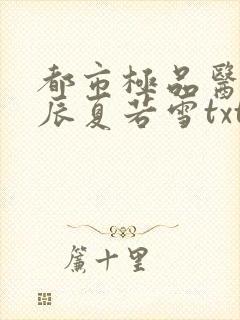 都市極品醫
辰夏若雪txt
簾十里